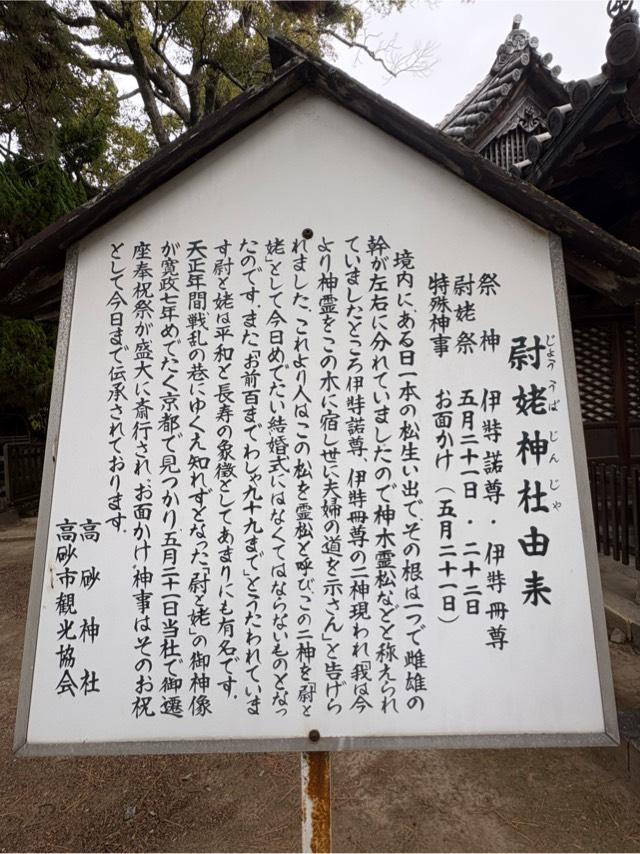 尉姥神社由来
じょううばじんじゃ
祭神 伊弉諾尊・伊弉冊尊
尉姥祭 五月二十一日・二十二日
特殊神事 お面かけ(五月二十一日)
境内に、ある日一本の松生い出で、その根は一つで雌雄の
幹が左右に分れていましたので神木霊松などと称えられ
ていましたところ伊弉諾尊、伊弉冊尊の二神現われ「我は今
より神霊をこの木に宿し世に夫婦の道を示さん」と告げら
れました、これより人はこの松を霊松と呼び、この二神を「尉と
姥」として今日めでたい結婚式にはなくてはならないものとなっ
たのです。また「お前百までわしゃ九十九まで」とうたわれていま
す尉と姥は平和と長寿の象徴としてあまりにも有名です。
天正年間戦乱の巷にゆくえ知れずとなった「尉と姥」の御神像
が寛政七年めでたく京都で見つかり、五月二十一日当社で御遷
座奉祝祭が盛大に斎行され、お面かけ神事はそのお祝
として今日まで伝承されております。
高砂神社
高砂市観光協会